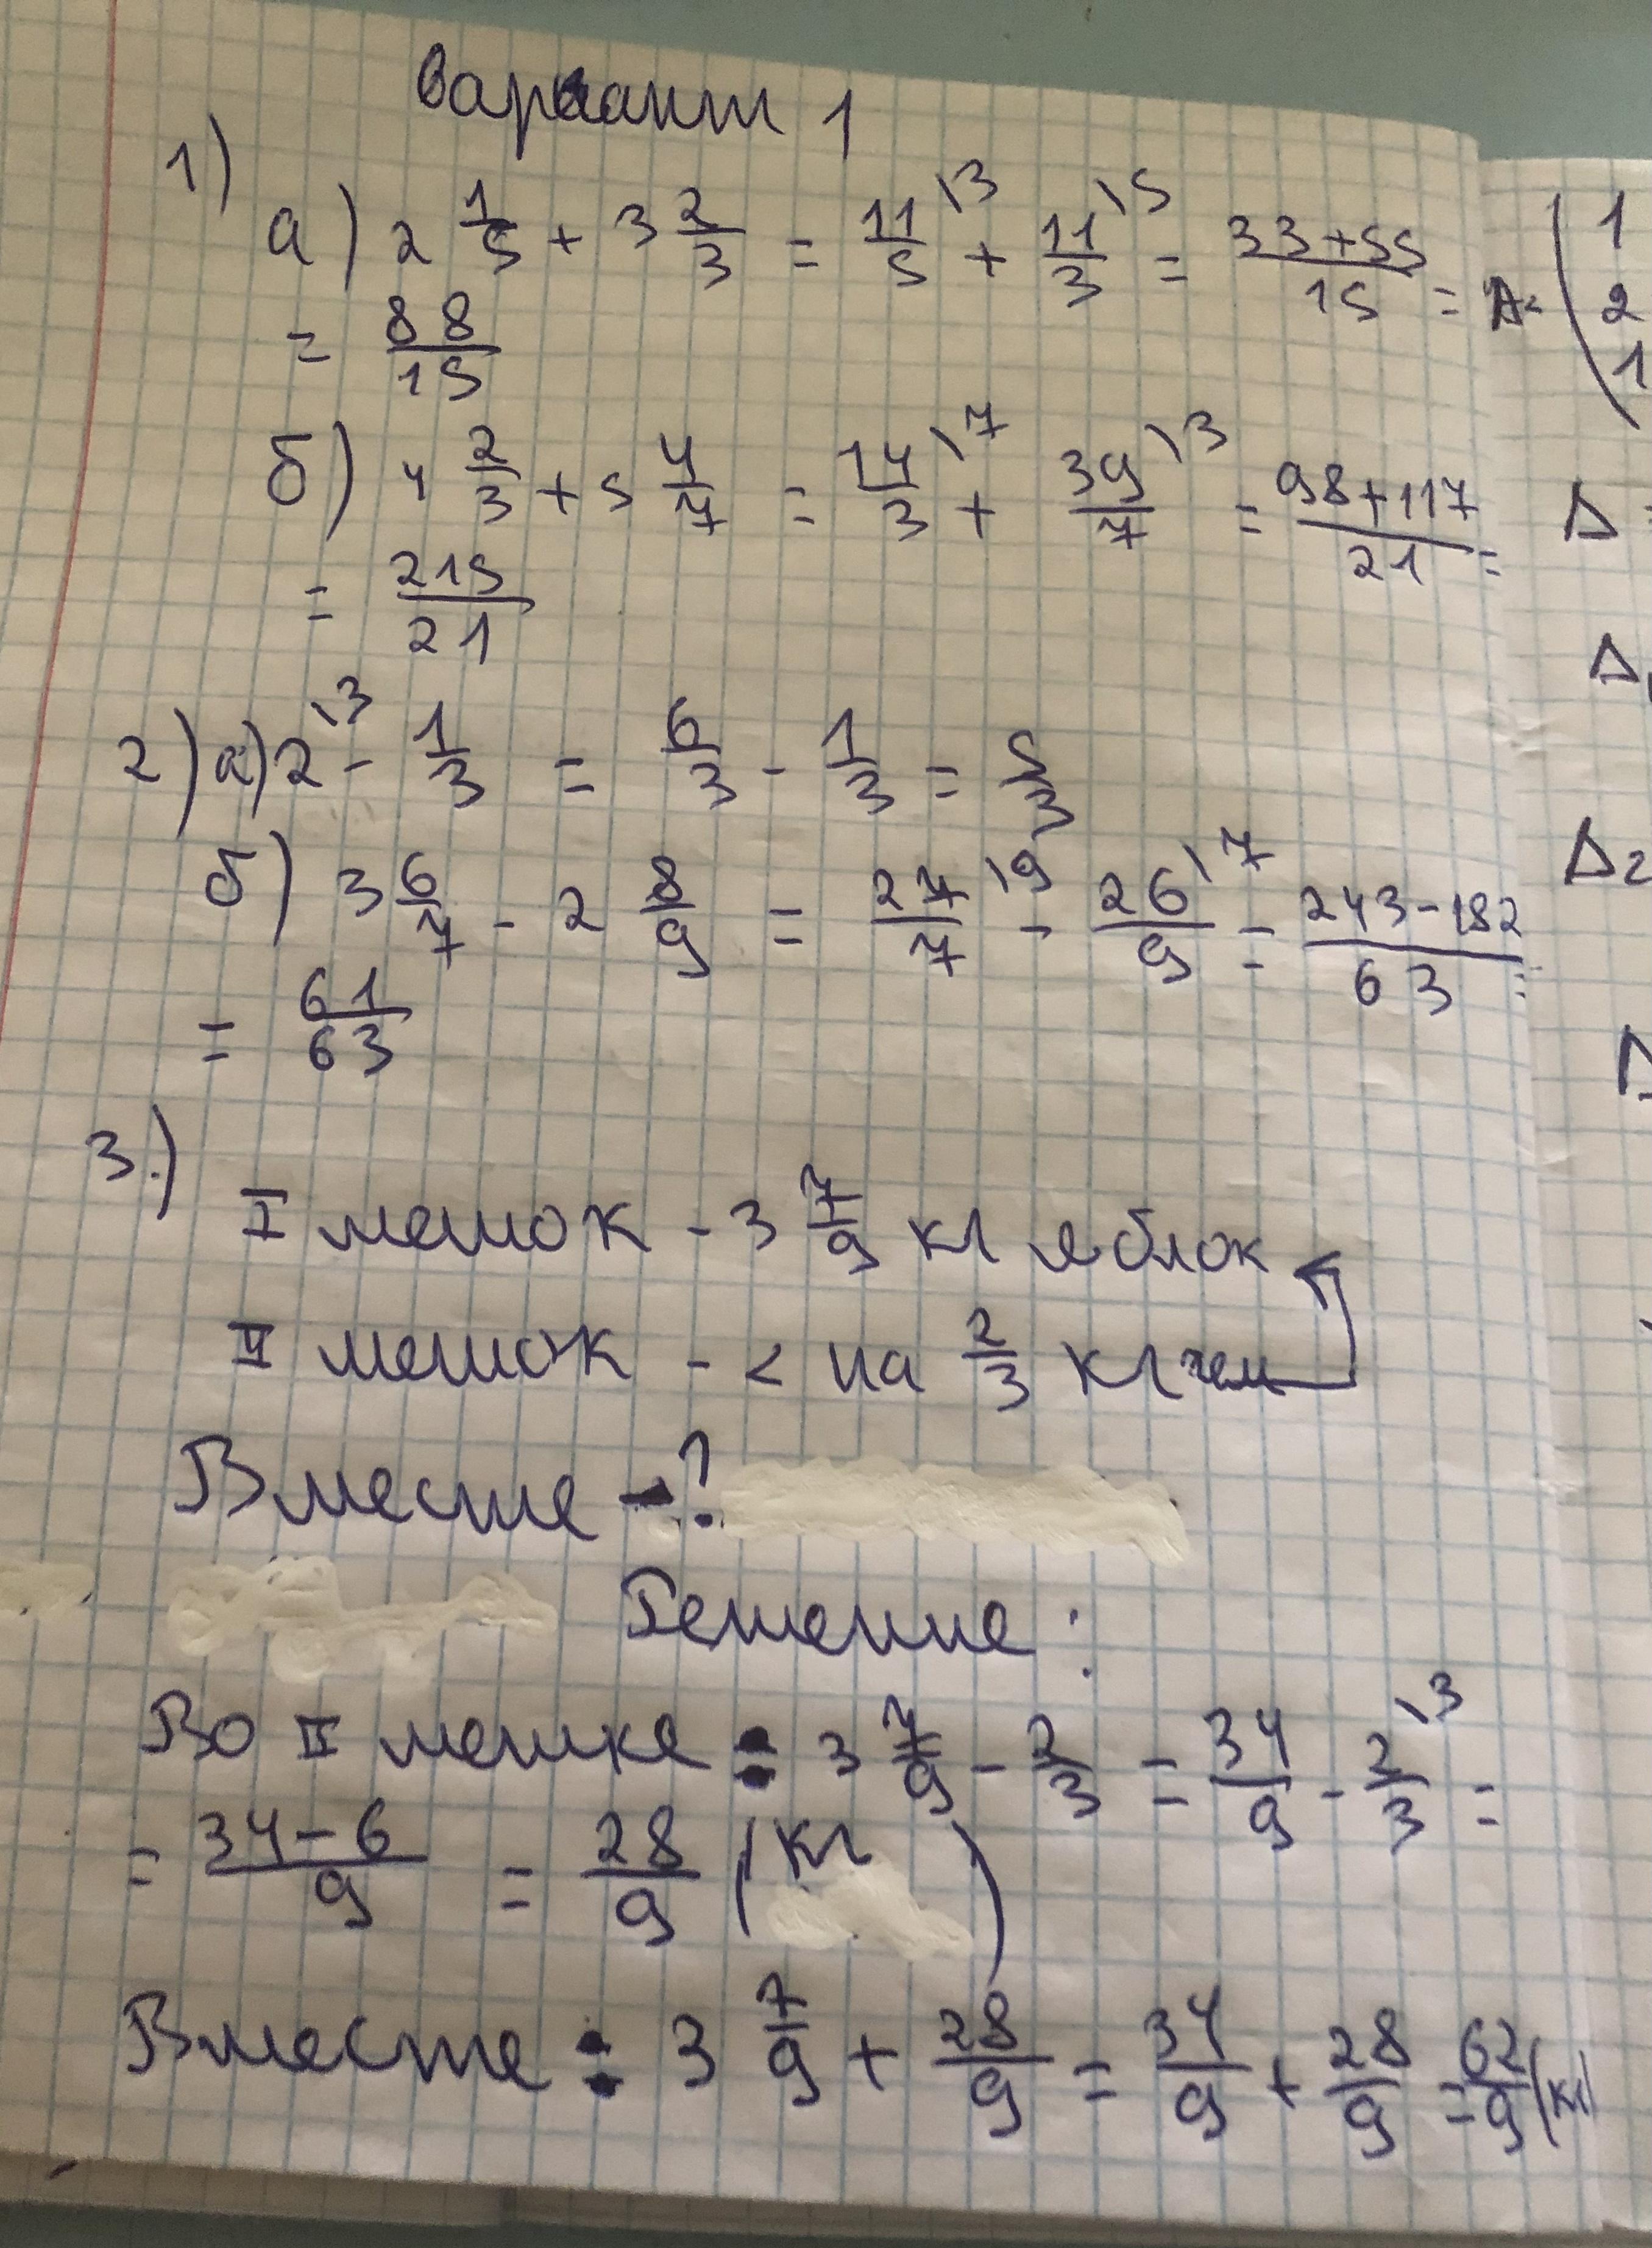 Вариант 1
1)
а) 2 1/5 + 3 2/3 = 11/5 \3 + 11/3 \5 = 33+55/15 =
= 88/15
б) 4 2/3 + 5 4/7 = 14/3 \7 + 39/7 \3 = 98+117/21 =
= 215/21
2) а) 2 \3 - 1/3 = 6/3 - 1/3 = 5/3
б) 3 6/7 - 2 8/9 = 27/7 \9 - 26/9 \7 = 243-182/63 =
= 61/63
3.)
I мешок - 3 7/9 кг яблок
II мешок - < на 2/3 кг чем
Вместе - ?
Решение:
Во II мешке: 3 7/9 - 2/3 = 34/9 - 2/3 \3 =
= 34-6/9 = 28/9 (кг)
Вместе: 3 7/9 + 28/9 = 34/9 + 28/9 = 62/9 (кг)
A= ( 1
2
1
Δ =
Δ
Δ2
Δ